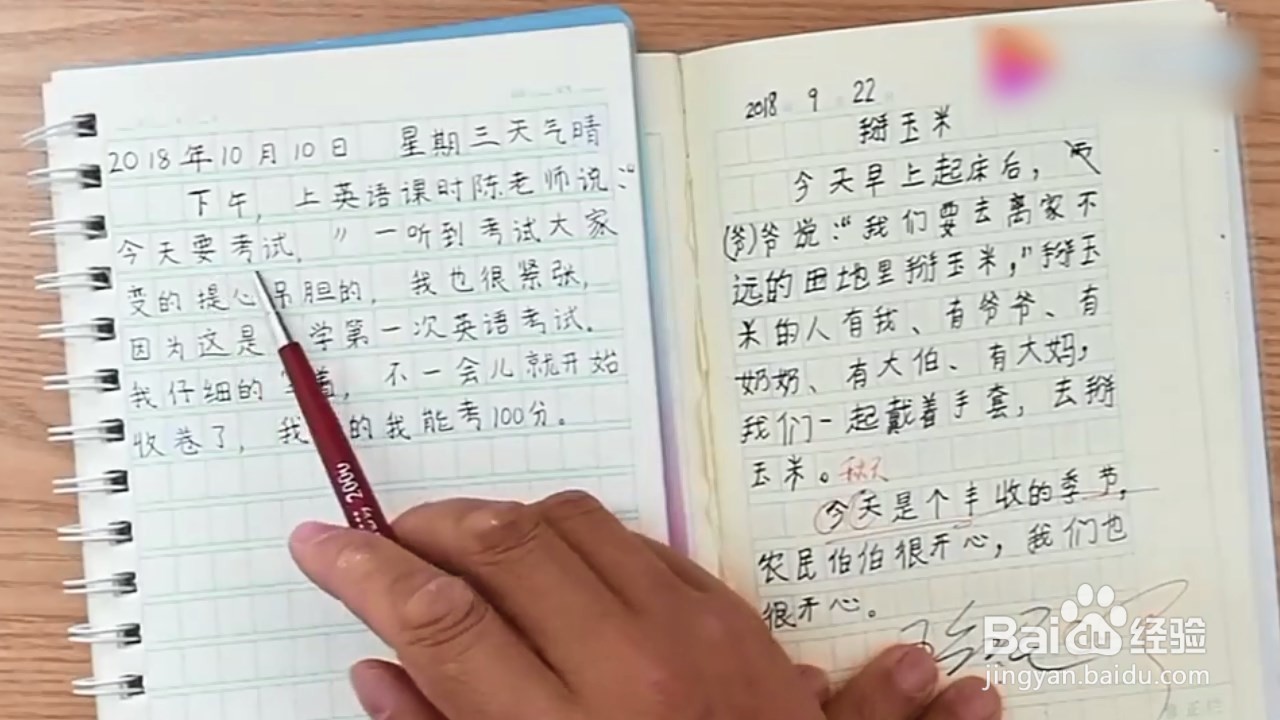 2018年10月10日 星期三天气晴
下午，上英语课时陈老师说：“
今天要考试。”一听到考试大家
变的提心吊胆的，我也很紧张，
因为这是 学第一次英语考试。
我仔细的 着，不一会儿就开始
收卷了，我 的我能考100分。
2018 9 22
掰玉米
今天早上起床后，
(爷)爷说：“我们要去离家不
远的田地里掰玉米，”掰玉
米的人有我、有爷爷、有
奶奶、有大伯、有大妈，
我们一起戴着手套，去掰
玉米。秋天
今天是个丰收的季节，
农民伯伯很开心，我们也
很开心。
2000
Baidu经验
jingyan.baidu.com